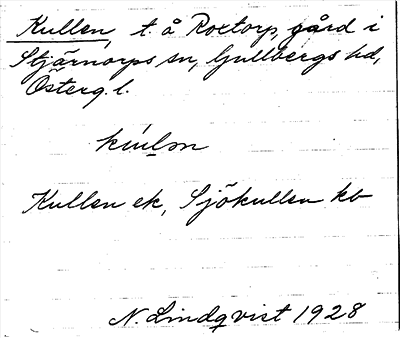 Kullen, t. å Roxtorp, gård i
Stjärnorps sn, Gullbergs hd,
Österg. l.
Kullen ek, Sjökullen kb
N. Lindqvist 1928